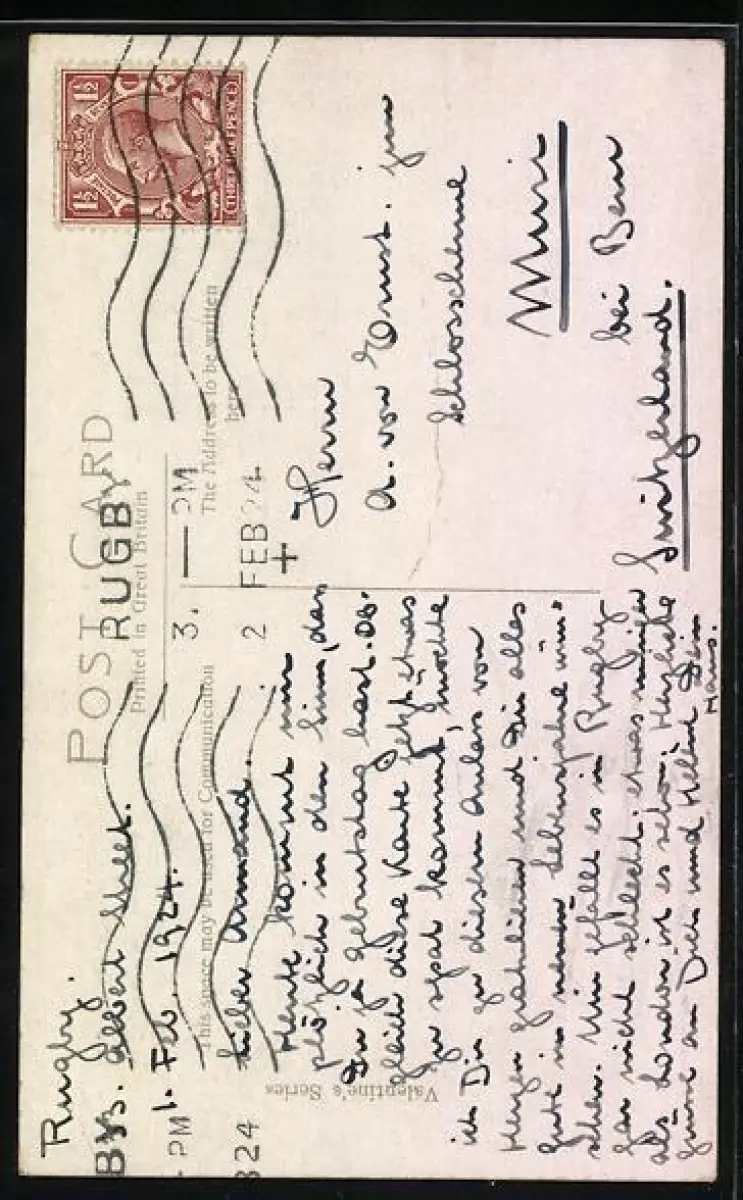 POST CARD
Printed in Great Britain
This space may be used for Communication
The Address to be written
here
Valentine's Series
RUGBY
3. — PM
2 FEB 24
+
RUGBY
- PM
324
1½ 1½
THREE HALFPENCE
Rugby.
Albert Street.
1. Feb. 1924.
Lieber Armand.
Heute kommt mir
plötzlich in den Sinn, dass
Du ja Geburtstag hast. Ob-
gleich diese Karte jetzt etwas
zu spät kommt, möchte
ich Dir zu diesem Anlass von
Herzen gratulieren und Dir alles
Gute im neuen Lebensjahre wün=
schen. Mir gefällt es in Rugby
gar nicht schlecht, etwas
als London ist es schon. Herzliche
Grüsse an Dich und Dein
Hans.
Herrn
A. von Ernst. jun
Schlosscheune
Muri
bei Bern
Switzerland.